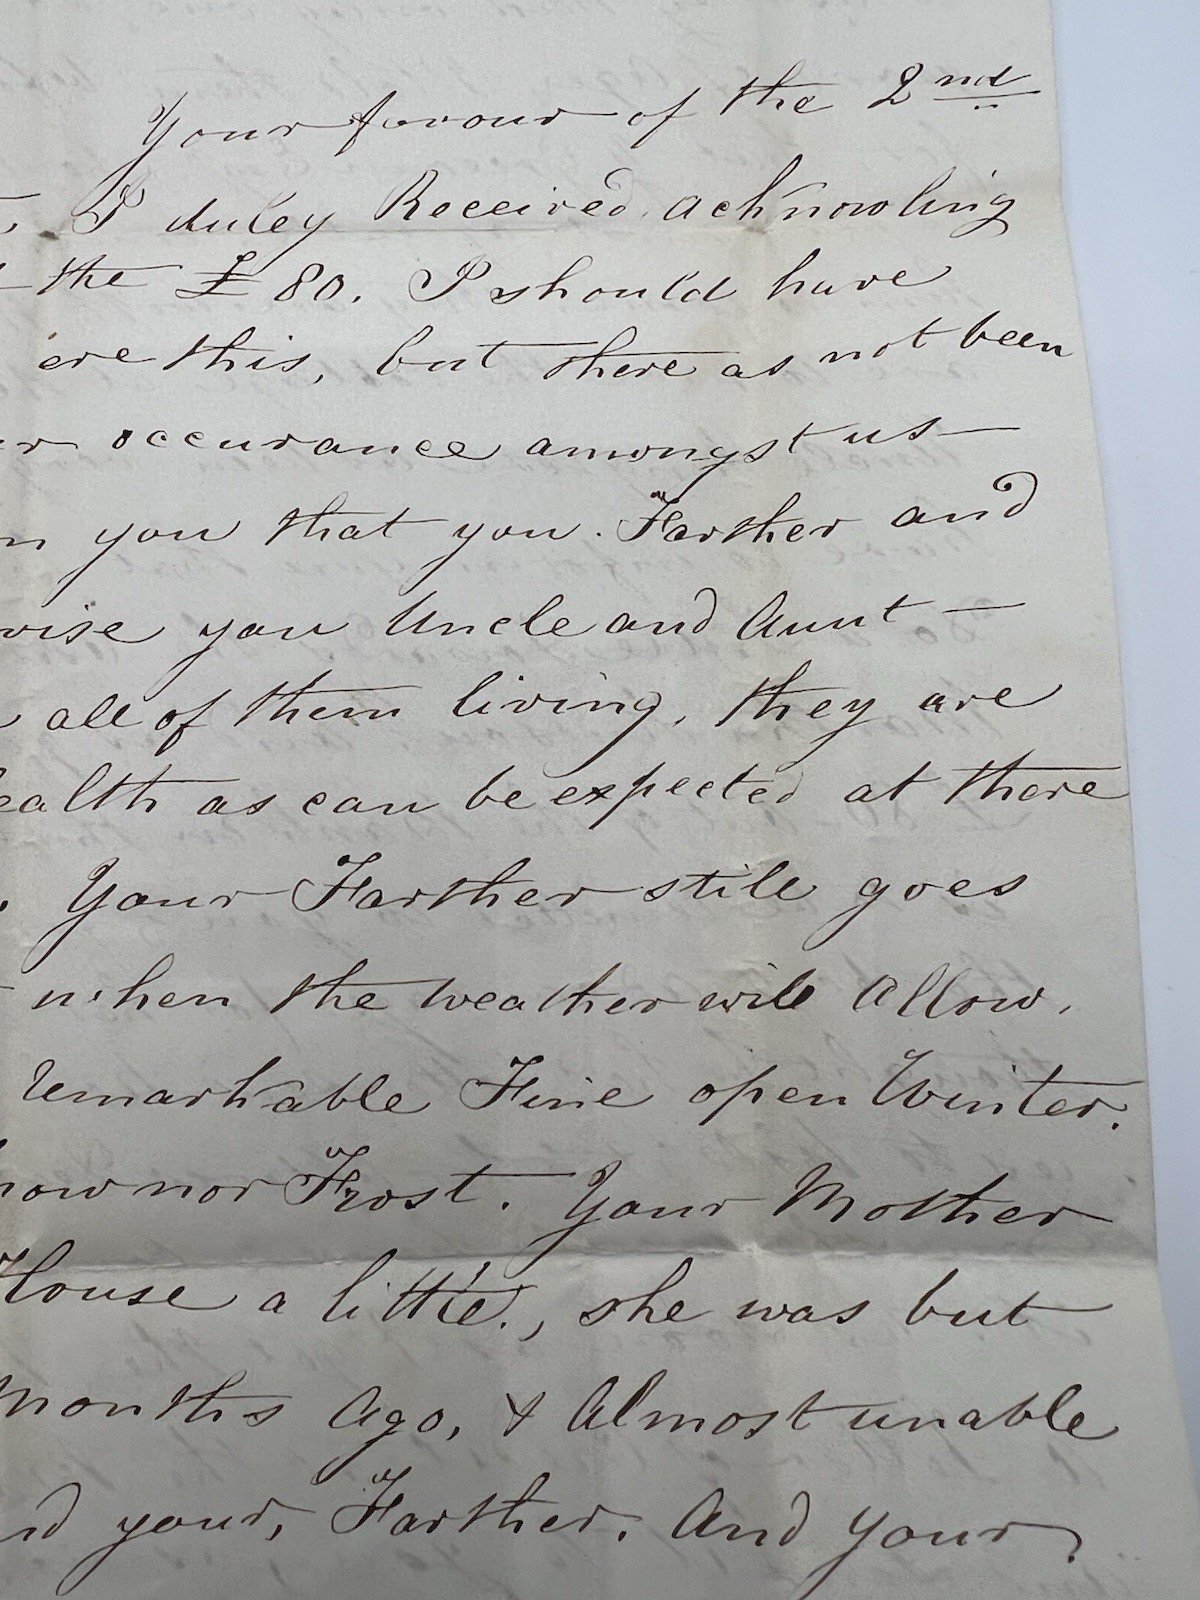 Your favour of the 2nd
, I duley Received, acknowling
the £80. I should have
ere this, but there as not been
occurance amongst us—
you that you. Farther and
wise you Uncle and Aunt—
all of them living, they are
ealth as can be expected at there
. Your Farther stile goes
when the weather will allow.
remarkable Fine open Winter.
now nor Frost. Your Mother
House a little., she was but
Months Ago, & Almost unable
d your, Farther. And your,